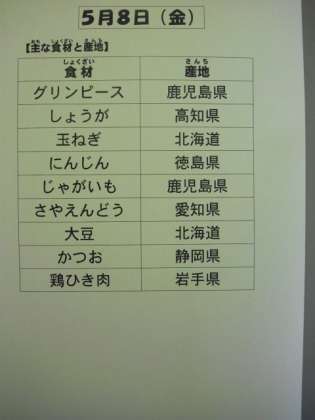 5月8日（金）
【主な食材と産地】
おも しょくざい さんち
しょくざい さんち
食材 産地
グリンピース 鹿児島県
しょうが 高知県
玉ねぎ 北海道
にんじん 徳島県
じゃがいも 鹿児島県
さやえんどう 愛知県
大豆 北海道
かつお 静岡県
鶏ひき肉 岩手県